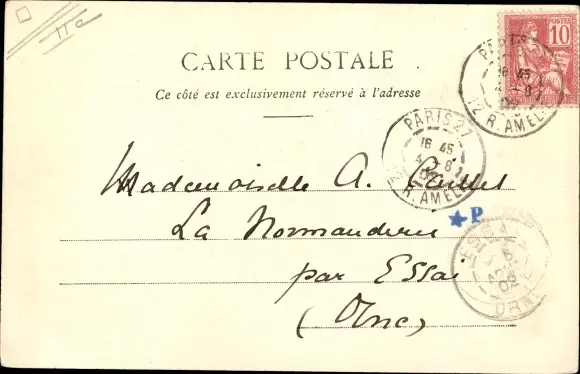 11a
10
CARTE POSTALE
Ce côté est exclusivement réservé à l'adresse
PARIS
12 R. AMEL
PARIS 27
16 45
4 -8
02
12 R. AMEL
Mademoiselle A. Caillet
La Normanderie
★ P.
par Essai
(Orne)
ESSAI
5
02
ORNE